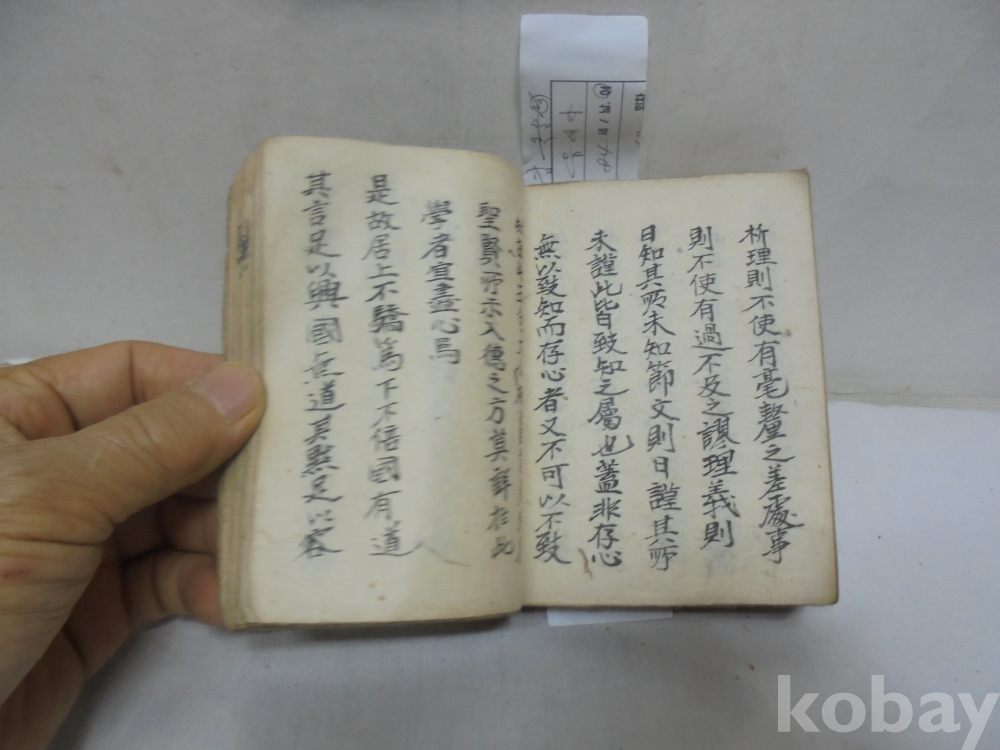 析理則不使有毫釐之差處事
則不使有過不及之謬理義則
日知其所未知節文則日謹其所
未謹此皆致知之屬也蓋非存心
無以致知而存心者又不可以不致
聖賢所示入德之方莫詳於此
學者宜盡心焉
是故居上不驕爲下不倍國有道
其言足以興國無道其默足以容
kobay